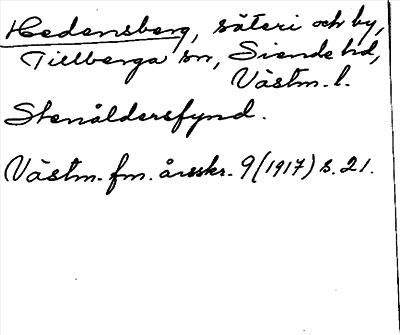 Hedensberg, säteri och by,
Tillberga sn, Siende hd,
Västm. l.
Stenåldersfynd.
Västm. fm. årsskr. 9 (1917) s. 21.